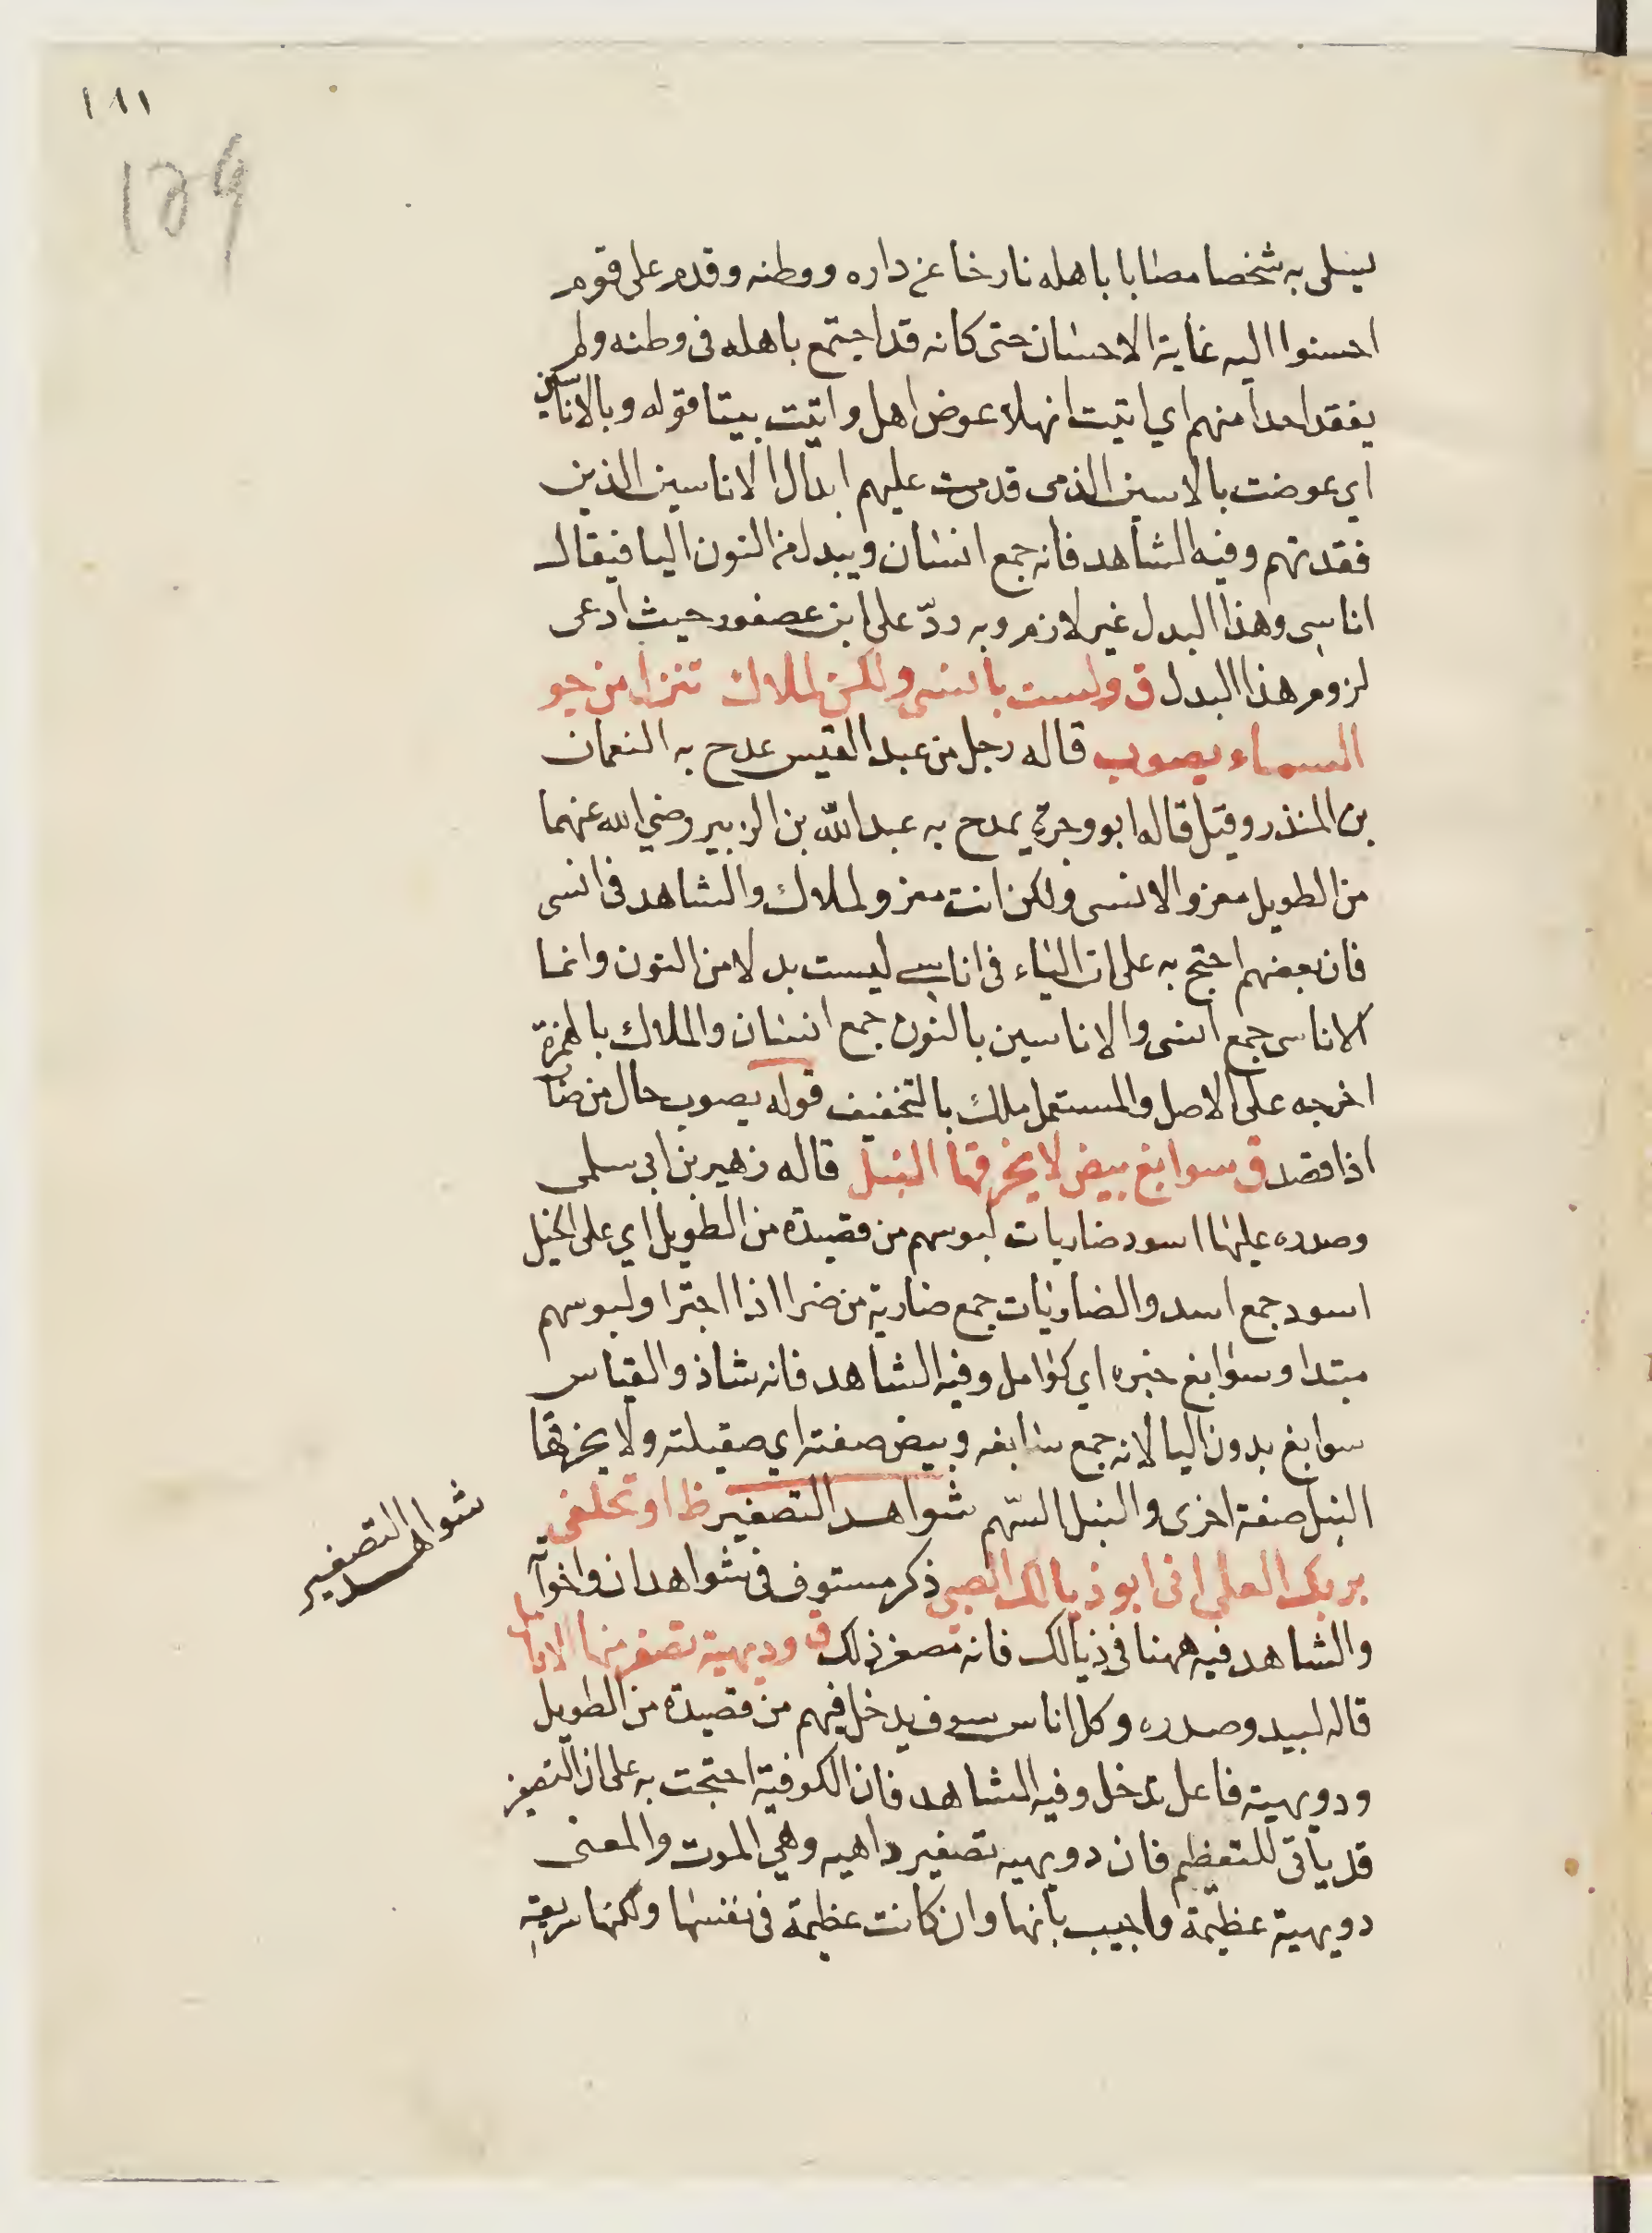 ١٨١
189
يسلى به شخصا مصابا باهله نازحا عن داره ووطنه وقدم على قوم
احسنوا اليه غاية الاحسان حتى كانه قد اجتمع باهله فى وطنه ولم
يفقد احدا منهم اي اتيت انهلا عوض اهل واتيت بيتا قوله وبالاناسين
اي عوضت بالاسين الذى قدمت عليهم ابدال الاناسين الذين
فقدتهم وفيه الشاهد فانه جمع انسان ويبدل من النون اليا فيقال
اناسى وهذا البدل غير لازم وبه ردّ على ابن عصفور حيث ادعى
لزوم هذا البدل ق ولست بانسى ولكن لملاك تنزل من جو
السماء يصوب قاله رجل من عبد القيس يمدح به النعمان
بن المنذر وقيل قاله ابو وجزة يمدح به عبد الله بن الزبير رضي الله عنهما
من الطويل معزو الانسى ولكن انت معزو لملاك والشاهد فى انسى
فان بعضهم احتج به على ان الياء فى اناسي ليست بدلا من النون وانما
الاناسى جمع انسى والاناسين بالنون جمع انسان والملاك بالهمزة
اخرجه على الاصل والمستعمل ملك بالتخفيف قوله يصوب حال من صاب
اذا قصد ق سوابيغ بيض لا يخرقها النبل قاله زهير بن ابى سلمى
وصدره عليها اسود ضاريات لبوسهم من قصيدة من الطويل اي على الخيل
اسود جمع اسد والضاريات جمع ضارية من ضرا اذا اجترا ولبوسهم
مبتدا وسوابيغ خبره اي كوامل وفيه الشاهد فانه شاذ والقياس
سوابغ بدون اليا لانه جمع سابغه وبيض صفته اي صقيلته ولا يخرقها
النبل صفة اخرى والنبل السّهم شواهد التصغير ظ او تحلفى
شواهد التصغير
بربك العلى انى ابو ذيالك الصبى ذكر مستوفى فى شواهد ان واخواتها
والشاهد فيه ههنا فى ذيالك فانه تصغير ذلك ق ودويهية تصفر منها الانامل
قاله لبيد وصدره وكل اناس سوف يدخل فيهم من قصيدة من الطويل
ودويهية فاعل تدخل وفيه الشاهد فان الكوفية احتجت به على ان التصغير
قد ياتى للتعظيم فان دويهيه تصغير داهيه وهي الموت والمعنى
دويهية عظيمة واجيب بانها وان كانت عظيمة فى نفسها ولكنها سريعة